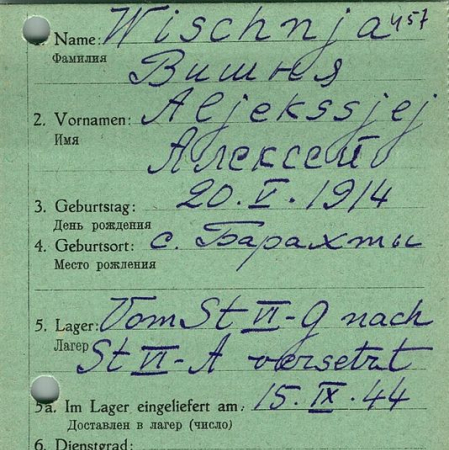 1. Name: Wischnja 457
Фамилия
Вишня
2. Vornamen: Aljekssjej
Имя
Алексей
3. Geburtstag: 20.V.1914
День рождения
4. Geburtsort: с. Барахты
Место рождения
5. Lager: Vom St VI-G nach
Лагер St VI-A versetzt
5a. Im Lager eingeliefert am: 15.IX.44
Доставлен в лагер (число)
6. Dienstgrad: